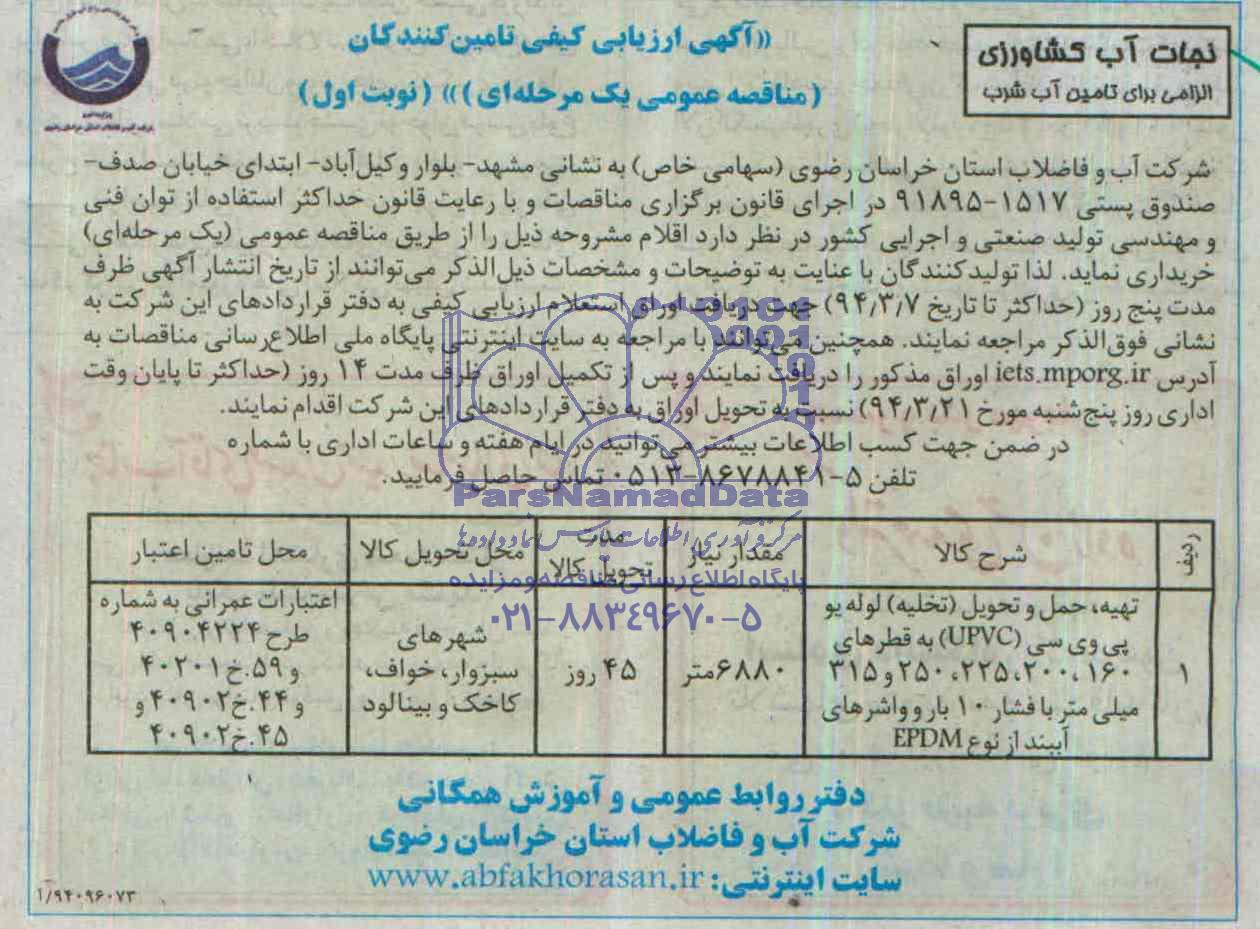 نجات آب کشاورزی
الزامی برای تامین آب شرب
«آگهی ارزیابی کیفی تامین کنندگان
(مناقصه عمومی یک مرحله‌ای)» (نوبت اول)
شرکت آب و فاضلاب استان خراسان رضوی (سهامی خاص) به نشانی مشهد- بلوار وکیل‌آباد- ابتدای خیابان صدف-
صندوق پستی ۱۵۱۷-۹۱۸۹۵ در اجرای قانون برگزاری مناقصات و با رعایت قانون حداکثر استفاده از توان فنی
و مهندسی تولید صنعتی و اجرایی کشور در نظر دارد اقلام مشروحه ذیل را از طریق مناقصه عمومی (یک مرحله‌ای)
خریداری نماید. لذا تولیدکنندگان با عنایت به توضیحات و مشخصات ذیل‌الذکر می‌توانند از تاریخ انتشار آگهی ظرف
مدت پنج روز (حداکثر تا تاریخ ۹۴/۳/۷) جهت دریافت اوراق استعلام ارزیابی کیفی به دفتر قراردادهای این شرکت به
نشانی فوق‌الذکر مراجعه نمایند. همچنین می‌توانند با مراجعه به سایت اینترنتی پایگاه ملی اطلاع‌رسانی مناقصات به
آدرس iets.mporg.ir اوراق مذکور را دریافت نمایند و پس از تکمیل اوراق ظرف مدت ۱۴ روز (حداکثر تا پایان وقت
اداری روز پنج‌شنبه مورخ ۹۴/۳/۲۱) نسبت به تحویل اوراق به دفتر قراردادهای این شرکت اقدام نمایند.
در ضمن جهت کسب اطلاعات بیشتر می‌توانید در ایام هفته و ساعات اداری با شماره
تلفن ۵-۸۶۷۸۸۴۱-۰۵۱۳ تماس حاصل فرمایید.
ParsNamadData
پایگاه اطلاع رسانی مناقصه و مزایده
۰۲۱-۸۸۳۴۹۶۷۰-۵
ردیف
شرح کالا
مقدار نیاز
مدت
تحویل کالا
محل تحویل کالا
محل تامین اعتبار
۱
تهیه، حمل و تحویل (تخلیه) لوله یو
پی وی سی (UPVC) به قطرهای
۱۶۰، ۲۰۰، ۲۲۵، ۲۵۰ و ۳۱۵
میلی متر با فشار ۱۰ بار و واشرهای
آببند از نوع EPDM
۶۸۸۰متر
۴۵ روز
شهرهای
سبزوار، خواف،
کاخک و بینالود
اعتبارات عمرانی به شماره
طرح ۴۰۹۰۴۲۲۴
و ۵۹.خ۴۰۲۰۱
و ۴۴.خ۴۰۹۰۲ و
۴۵.خ۴۰۹۰۲
دفتر روابط عمومی و آموزش همگانی
شرکت آب و فاضلاب استان خراسان رضوی
سایت اینترنتی: www.abfakhorasan.ir
۱/۹۴۰۹۶۰۷۳